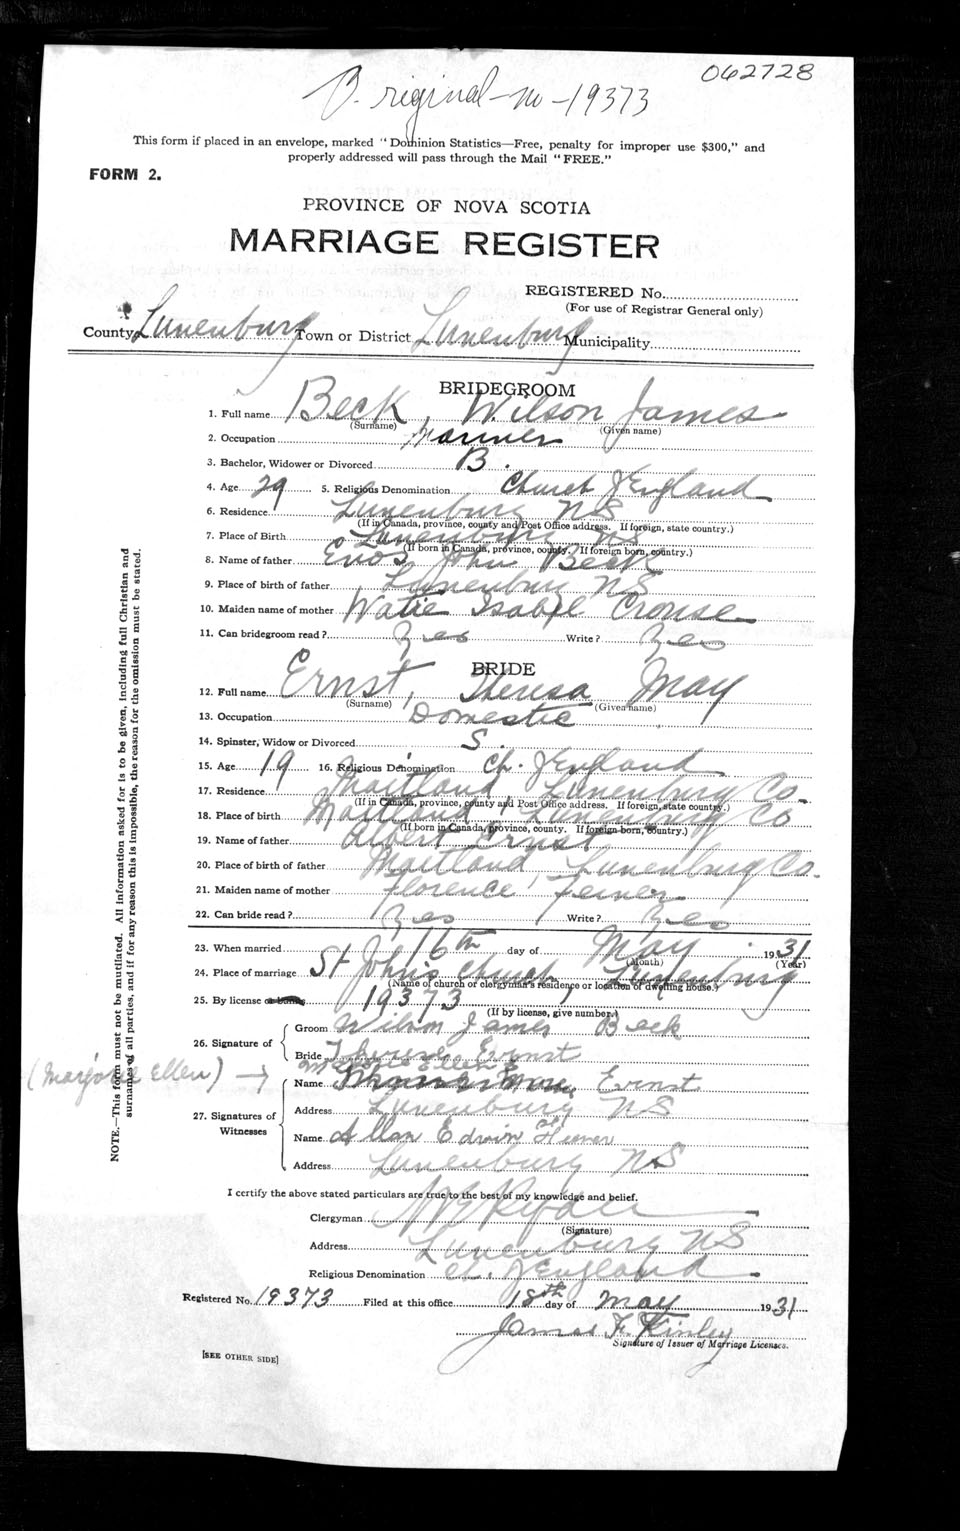 062728
Original No - 19373
This form if placed in an envelope, marked "Dominion Statistics—Free, penalty for improper use $300," and
properly addressed will pass through the Mail "FREE."
FORM 2.
PROVINCE OF NOVA SCOTIA
MARRIAGE REGISTER
REGISTERED No.
(For use of Registrar General only)
County Lunenburg Town or District Lunenburg Municipality
BRIDEGROOM
1. Full name Beck, Wilson James
(Surname) (Given name)
2. Occupation
3. Bachelor, Widower or Divorced B.
4. Age 29 5. Religious Denomination Church of England
6. Residence Lunenburg NS
(If in Canada, province, county and Post Office address. If foreign, state country.)
7. Place of Birth Lunenburg NS
(If born in Canada, province, county. If foreign born, country.)
8. Name of father Enos John Beck
9. Place of birth of father Lunenburg NS
10. Maiden name of mother Watie Isabel Crouse
11. Can bridegroom read? Yes Write? Yes
BRIDE
12. Full name Ernst, Theresa May
(Surname) (Given name)
13. Occupation Domestic
14. Spinster, Widow or Divorced S.
15. Age 19 16. Religious Denomination Ch. of England
17. Residence Maitland Lunenburg Co.
(If in Canada, province, county and Post Office address. If foreign, state country.)
18. Place of birth Maitland Lunenburg Co
(If born in Canada, province, county. If foreign born, country.)
19. Name of father Albert Ernst
20. Place of birth of father Maitland, Lunenburg Co.
21. Maiden name of mother Florence
22. Can bride read? Yes Write? Yes
23. When married 16th day of May 1931
(Month) (Year)
24. Place of marriage St John's Church, Lunenburg
(Name of church or clergyman's residence or location of dwelling house.)
25. By license or banns 19373
(If by license, give number.)
26. Signature of
Groom Wilson James Beck
Bride Ernst
(Marjorie Ellen) →
27. Signatures of Witnesses
Name Ernst
Address Lunenburg NS
Name Allan Edwin
Address Lunenburg NS
I certify the above stated particulars are true to the best of my knowledge and belief.
Clergyman
(Signature)
Address Lunenburg NS
Religious Denomination Ch. of England
Registered No. 19373 Filed at this office 18th day of May 1931
James F. Kinley
Signature of Issuer of Marriage Licenses.
[SEE OTHER SIDE]
NOTE.—This form must not be mutilated. All information asked for is to be given, including full Christian and
surnames of all parties, and if for any reason this is impossible, the reason for the omission must be stated.